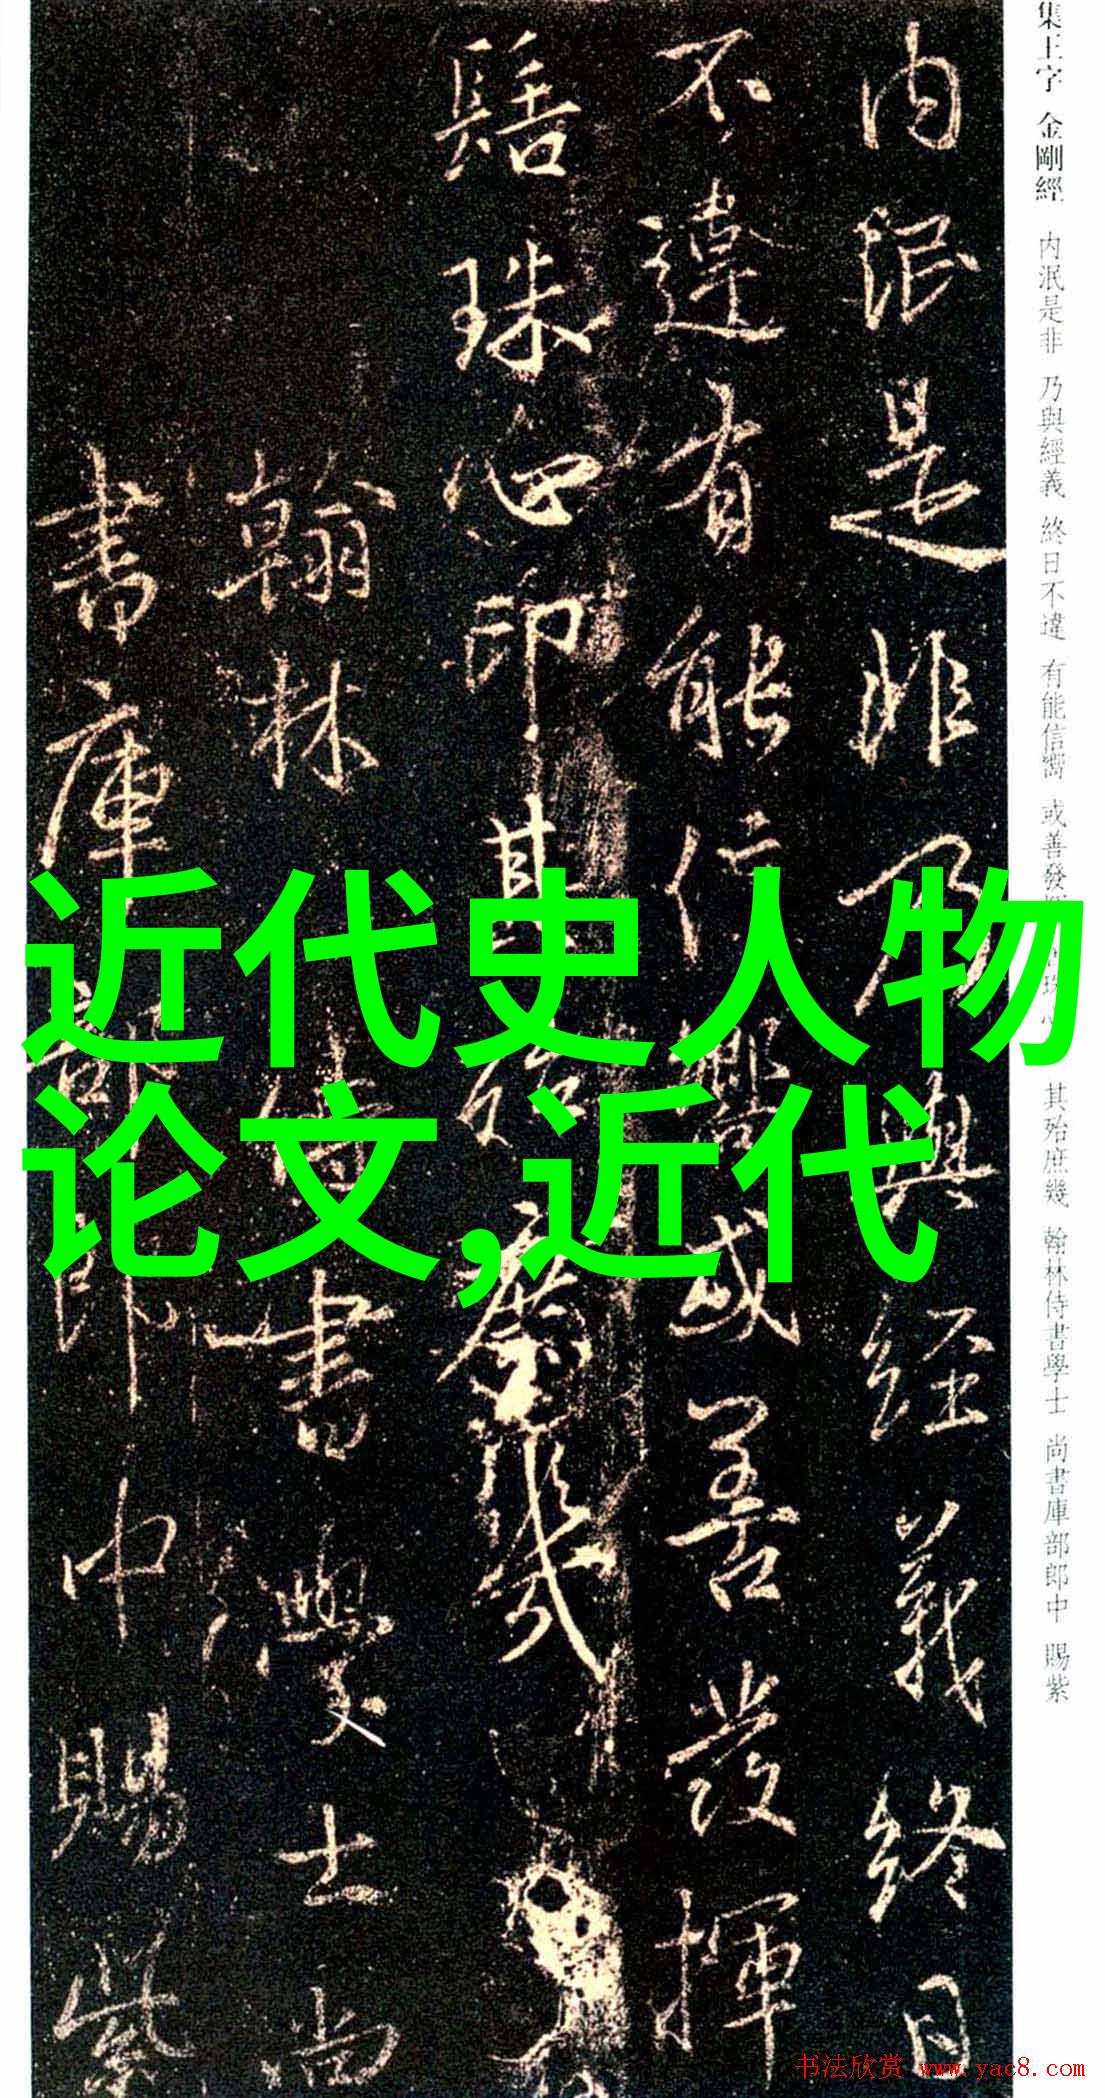 集王字 金剛經 内泯是非 乃與經義 終日不違 有能信嚮 或善發 其殆庶幾 翰林侍書學士 尚書庫部郎中 賜紫
内泯是非乃與經義終日
不違有能信嚮或善發揮
髻珠心印其殆庶幾
翰林侍書學士尚
書庫部郎中賜紫
近代史人物
论文,近代
书法欣赏 www.yac8.com